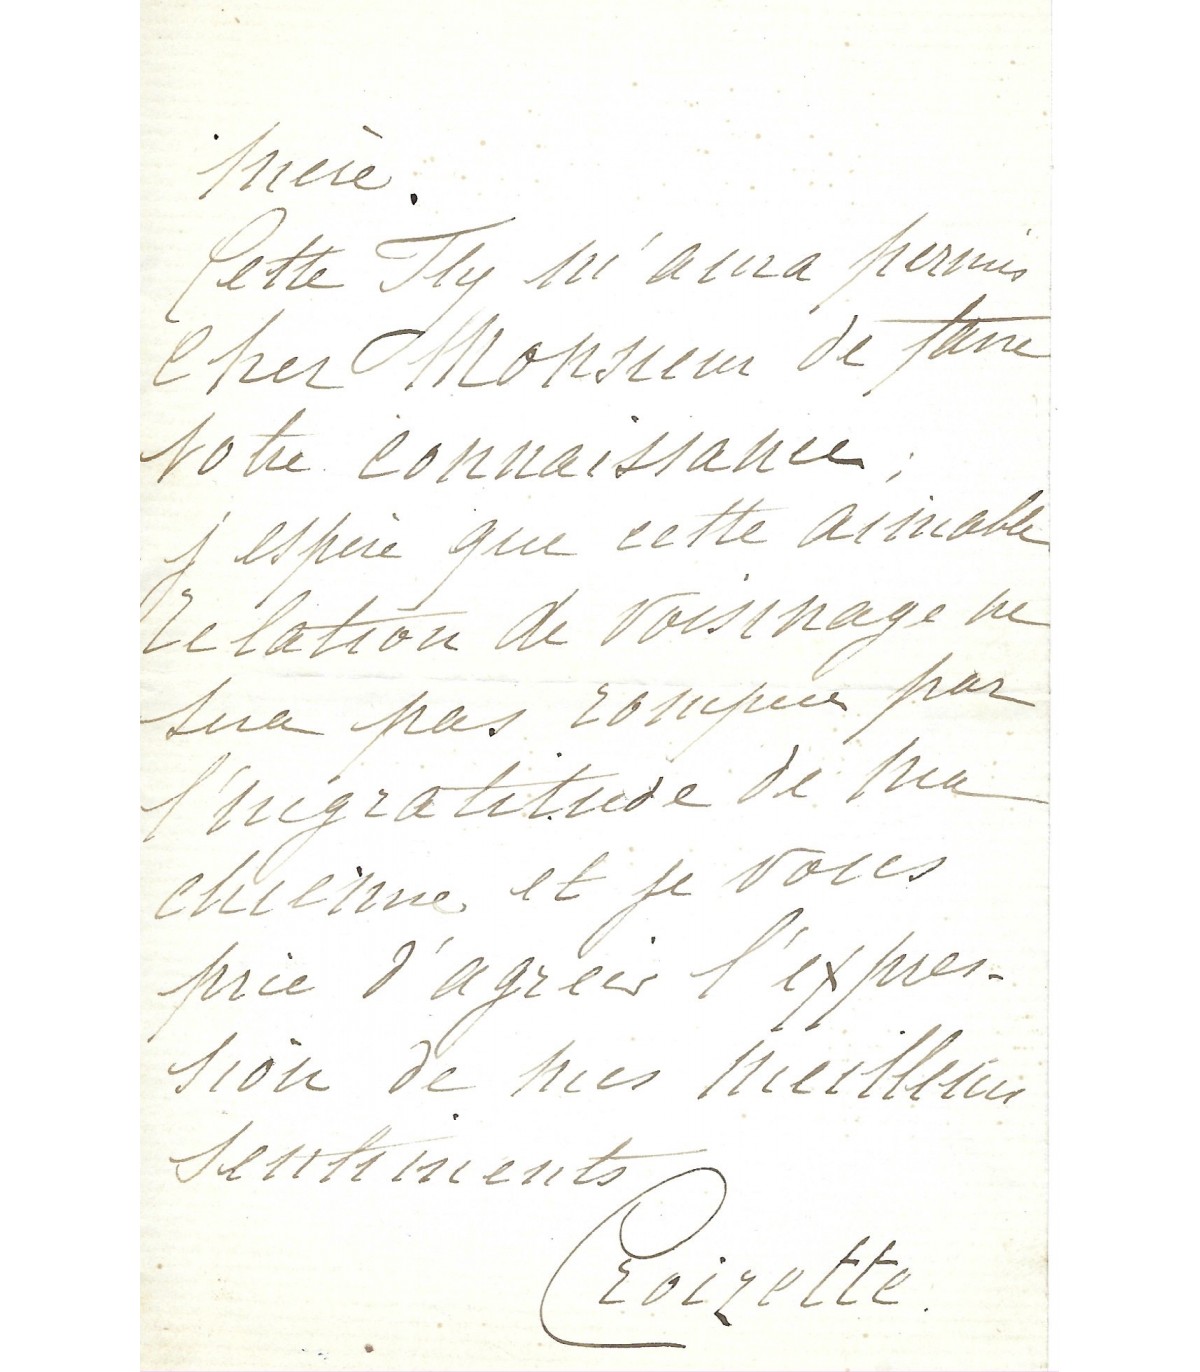 mère.
Cette Fly m'aura permis
Cher Monsieur de faire
votre connaissance ;
j'espère que cette aimable
relation de voisinage ne
sera pas rompue par
l'ingratitude de ma
chienne et je vous
prie d'agréer l'expres-
sion de mes meilleurs
sentiments
Croizette.